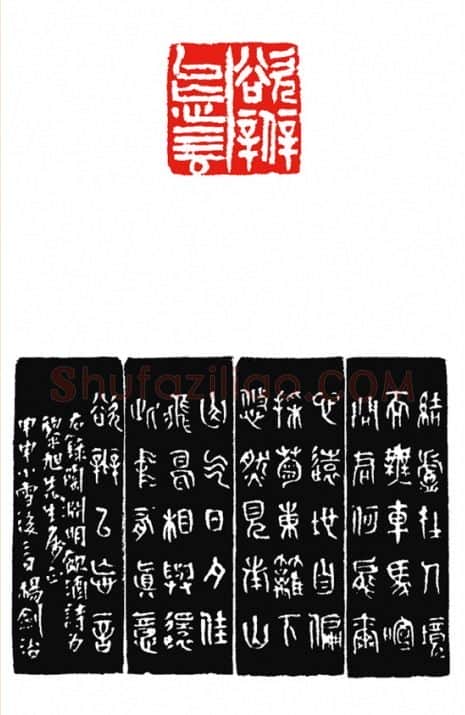 欲辨
已忘言
結廬在人境
而無車馬喧
問君何能爾
心遠地自偏
採菊東籬下
悠然見南山
山气日夕佳
飛鳥相與還
此中有真意
欲辨已忘言
右錄陶淵明飲酒詩為
旭先生屬正
甲申小雪後三日楊劍治
Shufaziliao.COM